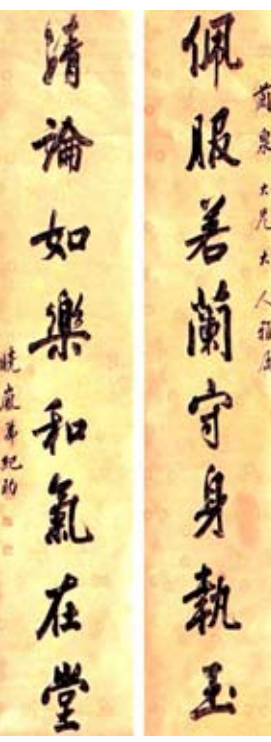 佩服若蘭守身執玉
蘭泉大兄大人雅屬
清論如樂和氣在堂
曉嵐弟紀昀